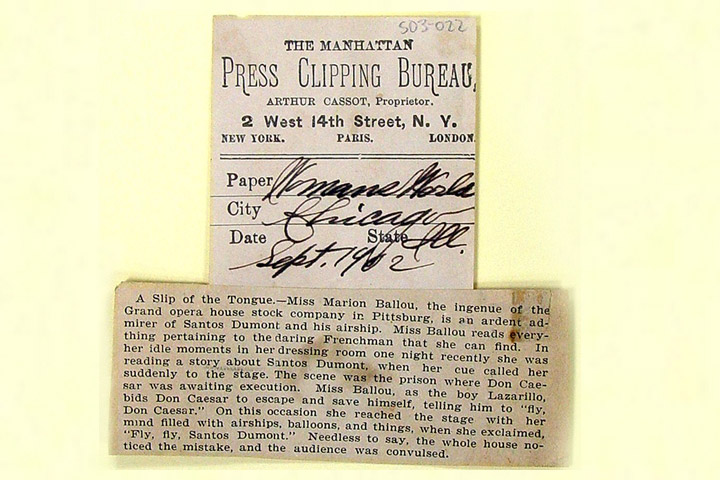 S03-022
THE MANHATTAN
PRESS CLIPPING BUREAU,
ARTHUR CASSOT, Proprietor.
2 West 14th Street, N. Y.
NEW YORK. PARIS. LONDON.
Paper Womans World
City Chicago
Date State Ill.
Sept. 1902
A Slip of the Tongue.—Miss Marion Ballou, the ingenue of the
Grand opera house stock company in Pittsburg, is an ardent ad-
mirer of Santos Dumont and his airship. Miss Ballou reads every-
thing pertaining to the daring Frenchman that she can find. In
her idle moments in her dressing room one night recently she was
reading a story about Santos Dumont, when her cue called her
suddenly to the stage. The scene was the prison where Don Cae-
sar was awaiting execution. Miss Ballou, as the boy Lazarillo,
bids Don Caesar to escape and save himself, telling him to "fly,
Don Caesar." On this occasion she reached the stage with her
mind filled with airships, balloons, and things, when she exclaimed,
"Fly, fly, Santos Dumont." Needless to say, the whole house no-
ticed the mistake, and the audience was convulsed.